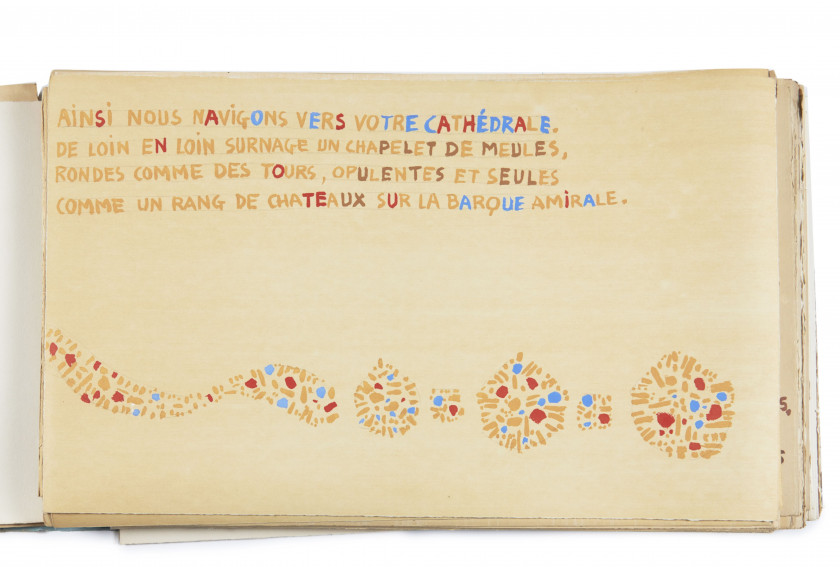 AINSI NOUS NAVIGONS VERS VOTRE CATHÉDRALE.
DE LOIN EN LOIN SURNAGE UN CHAPELET DE MEULES,
RONDES COMME DES TOURS, OPULENTES ET SEULES
COMME UN RANG DE CHATEAUX SUR LA BARQUE AMIRALE.